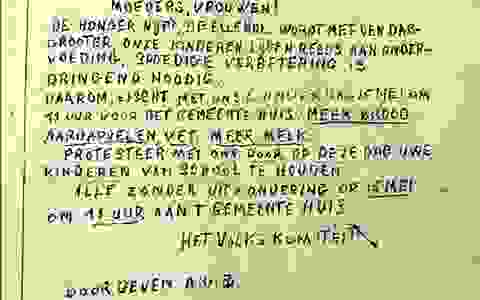 MOEDERS, VROUWEN!
DE HONGER NIJPT, DE ELLENDE WORDT MET DEN DAG
GROOTER. ONZE KINDEREN LIJDEN REEDS AAN ONDER-
VOEDING, SPOEDIGE VERBETERING IS
DRINGEND NOODIG.
DAAROM, EISCHT MET ONS OM
11 UUR VOOR HET GEMEENTE HUIS. MEER BROOD
AARDAPPELEN VET, MEER MELK.
PROTESTEER MET ONS DOOR OP DEZE DAG UWE
KINDEREN VAN SCHOOL TE HOUDEN
ALLE ZONDER UITZONDERING OP 15 MEI
OM 11 UUR AAN T GEMEENTE HUIS
HET VOLKS KOMITEIT
DOORGEVEN A.U.B.